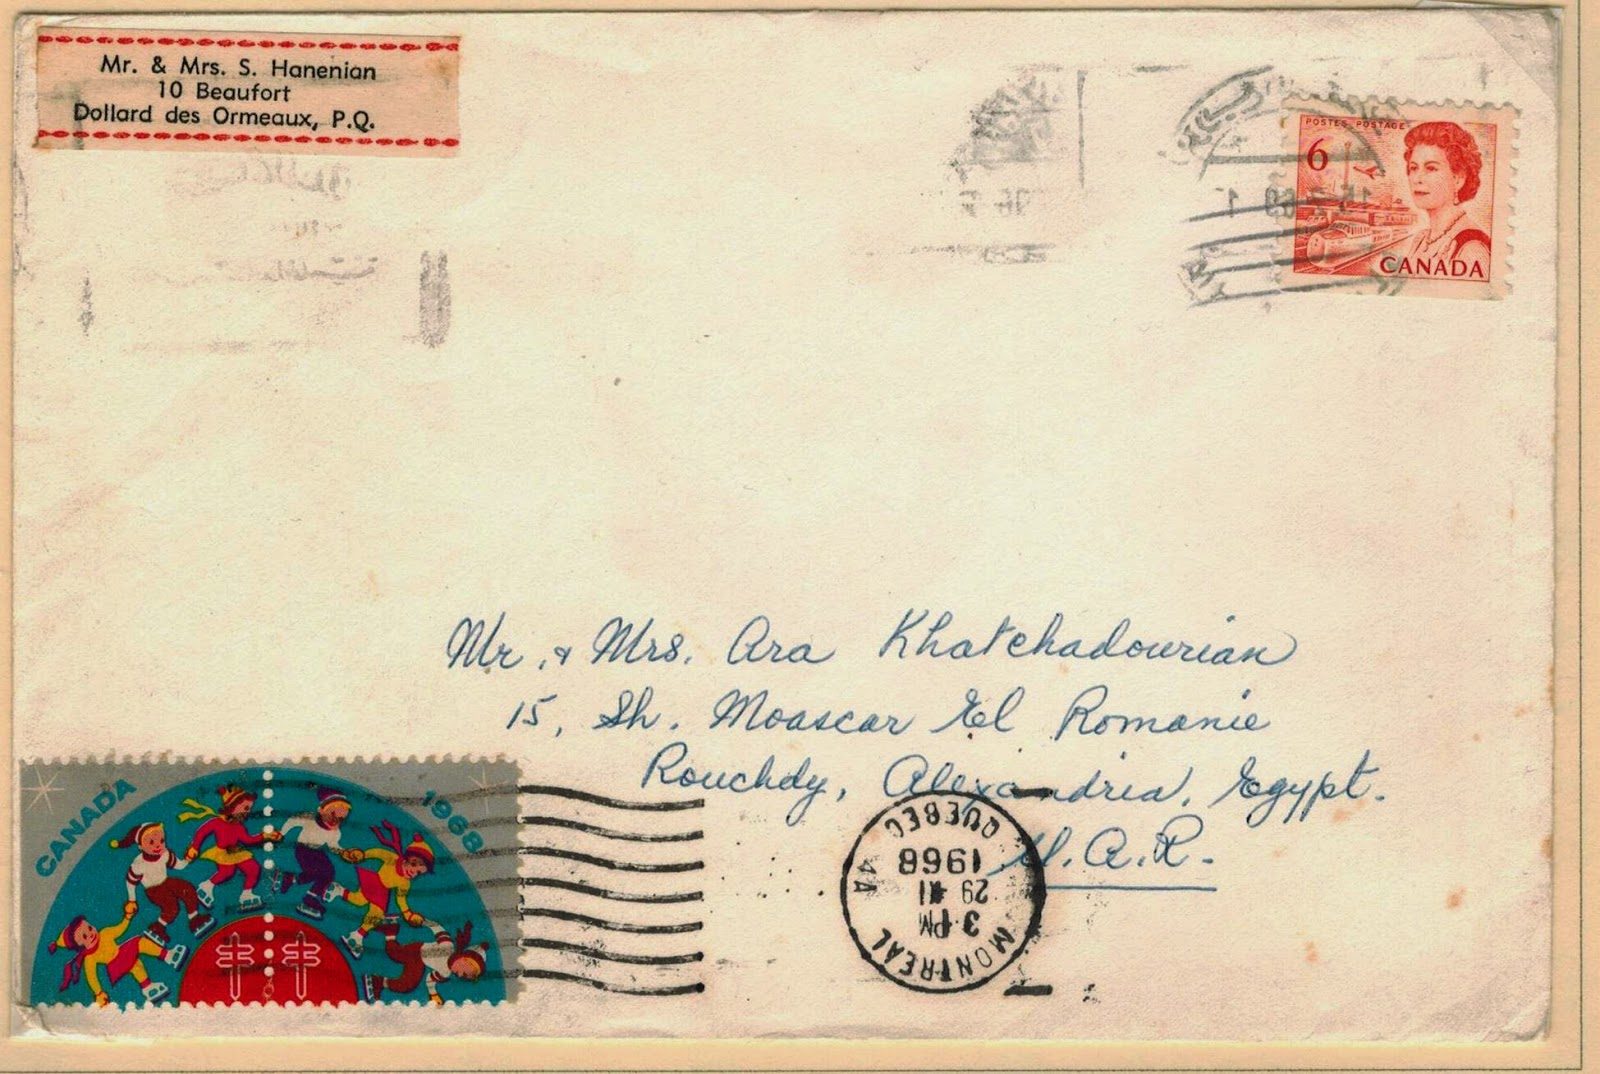 Mr. & Mrs. S. Hanenian
10 Beaufort
Dollard des Ormeaux, P.Q.
POSTES POSTAGE
6
CANADA
Mr. & Mrs. Ara Khatchadourian
15, Sh. Moascar El Romanie
Rouchdy, Alexandria, Egypt.
U.A.R.
CANADA 1968
MONTREAL
3 PM
29 II
1968
QUEBEC
4A